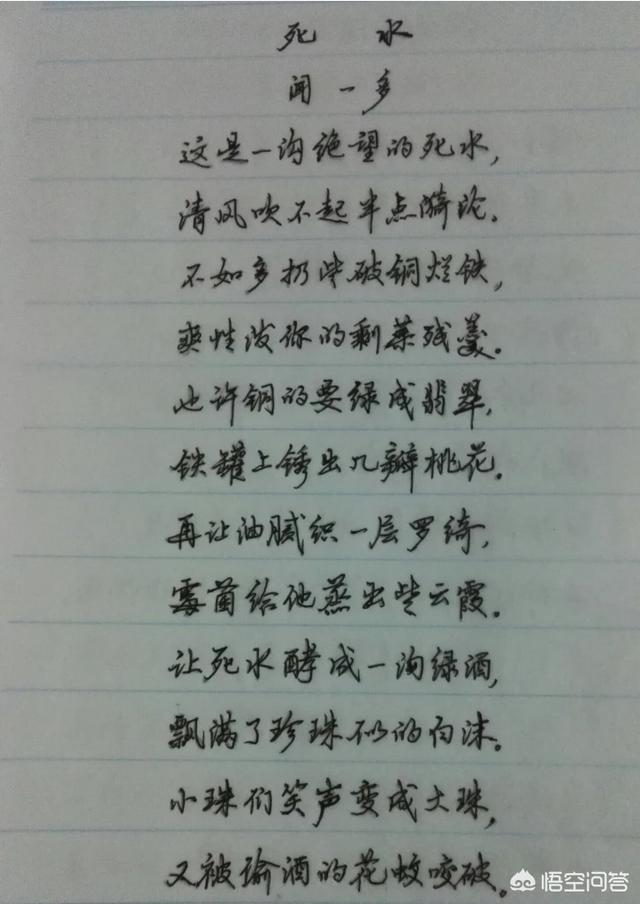 死水
闻一多
这是一沟绝望的死水，
清风吹不起半点漪沦。
不如多扔些破铜烂铁，
爽性泼你的剩菜残羹。
也许铜的要绿成翡翠，
铁罐上锈出几瓣桃花。
再让油腻织一层罗绮，
霉菌给他蒸出些云霞。
让死水酵成一沟绿酒，
飘满了珍珠似的白沫。
小珠们笑声变成大珠，
又被偷酒的花蚊咬破。
悟空问答